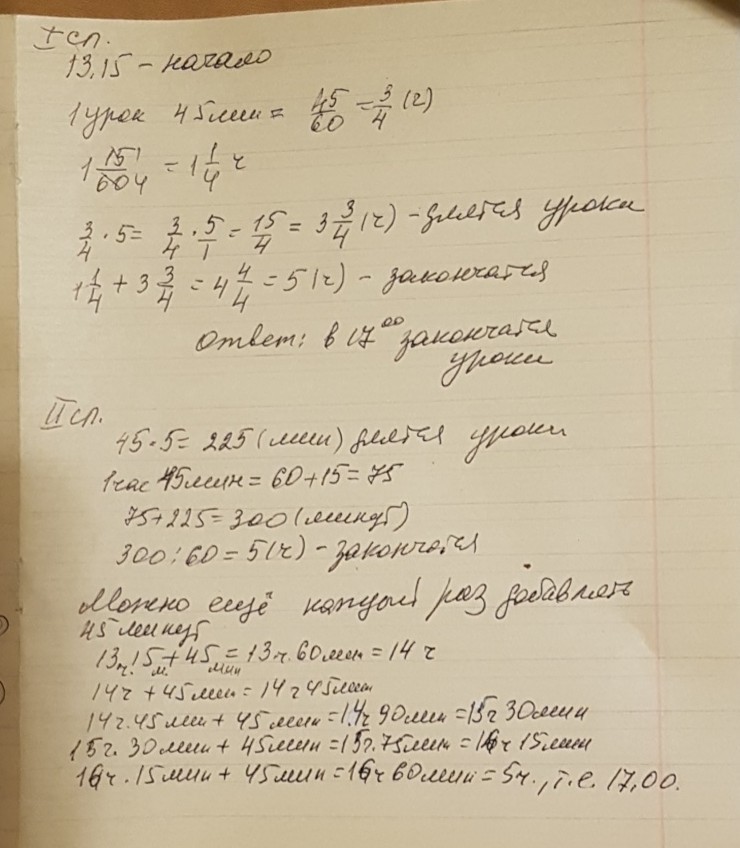 I сп.
13.15 – начало
1 урок 45 мин = 45/60 = 3/4 (ч)
1 15/60 = 1 1/4 ч
3/4 · 5 = 3/4 · 5/1 = 15/4 = 3 3/4 (ч) – длятся уроки
1 1/4 + 3 3/4 = 4 4/4 = 5 (ч) – закончатся
Ответ: в 17⁰⁰ закончатся
уроки
II сп.
45·5 = 225 (мин) длятся уроки
1 час 15 мин = 60 + 15 = 75
75 + 225 = 300 (минут)
300 : 60 = 5 (ч) – закончатся
Можно ещё каждый раз добавлять
45 минут
13 ч. 15 м. + 45 мин = 13 ч. 60 мин = 14 ч
14 ч + 45 мин = 14 ч 45 мин
14 ч. 45 мин + 45 мин = 14 ч 90 мин = 15 ч 30 мин
15 ч. 30 мин + 45 мин = 15 ч. 75 мин = 16 ч 15 мин
16 ч. 15 мин + 45 мин = 16 ч 60 мин = 5 ч., т.е. 17.00.